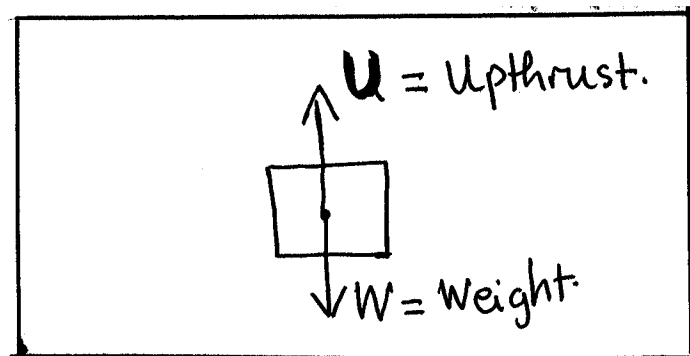 U = Upthrust.
W = Weight.